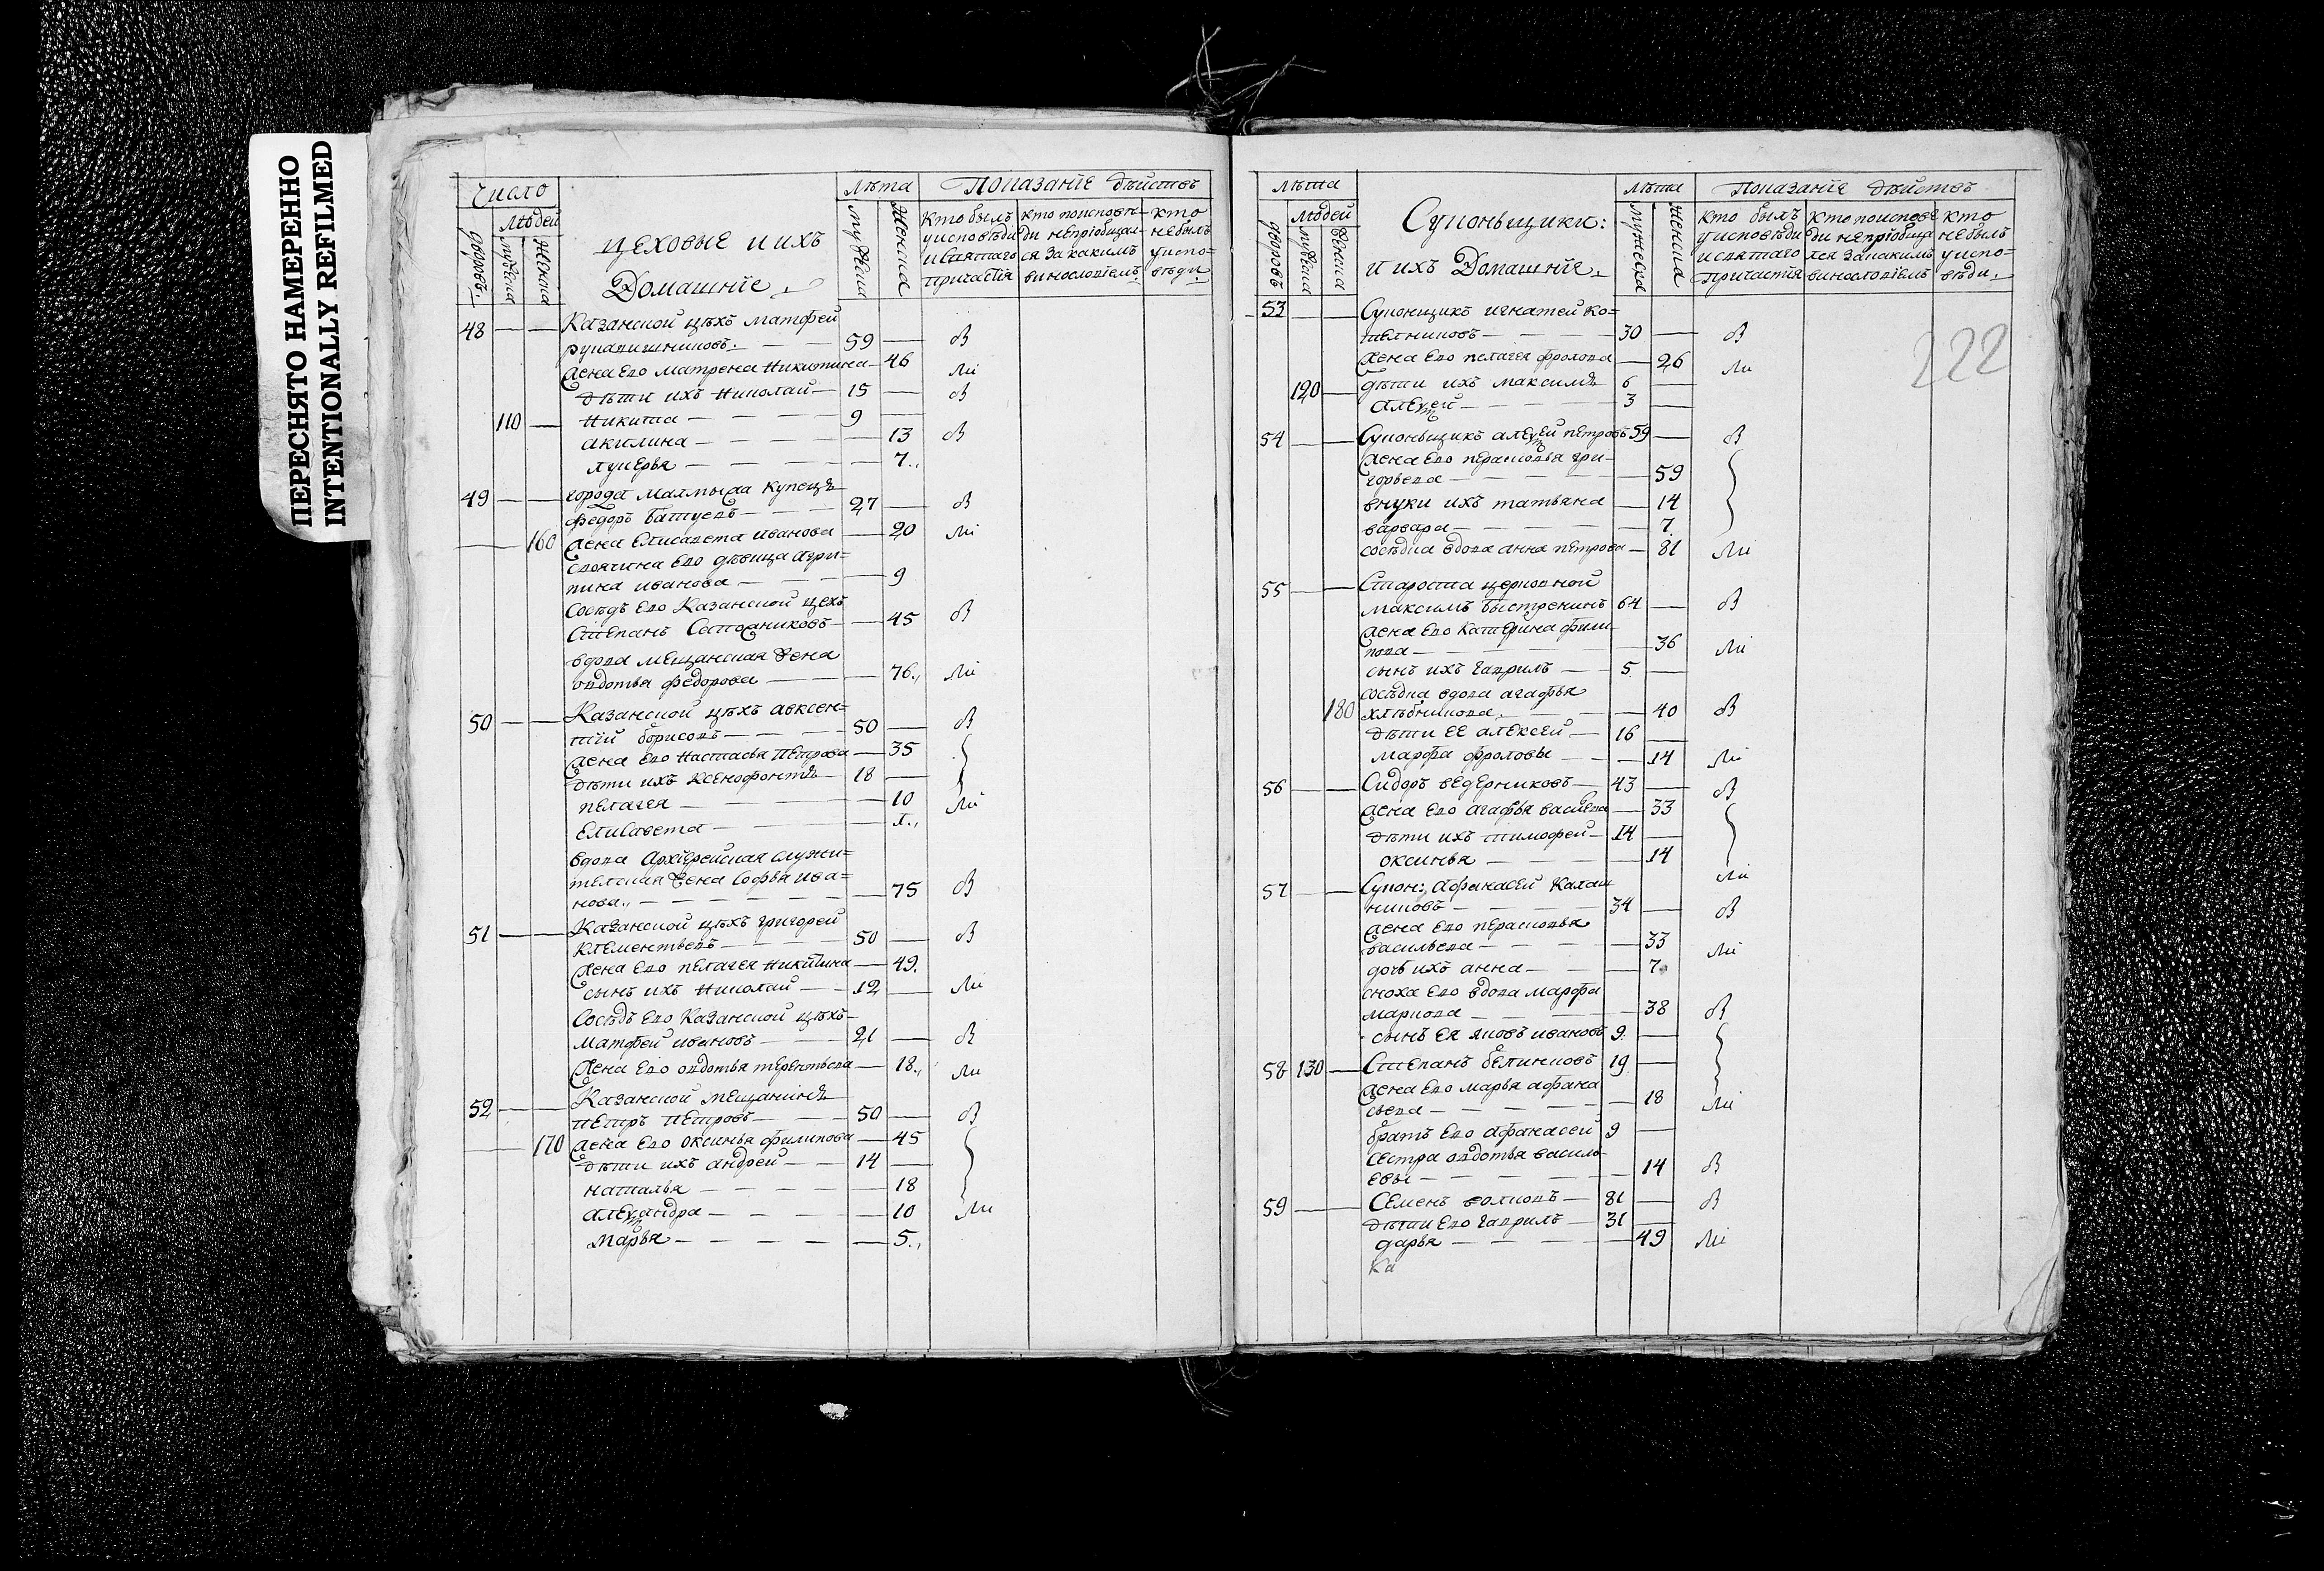 ПЕРЕСНЯТО НАМЕРЕННО
INTENTIONALLY REFILMED
Число
Людей
дворовъ.
мужеска
женска
цеховые и ихъ
Домашніе.
лѣта
мужеска
женска
Показаніе дѣйствъ
кто былъ
у исповѣди
и святаго
причастія
кто по исповѣ-
ди не пріобщал-
ся за какимъ
винословіемъ.
кто
не былъ
у испо-
вѣди.
48 — — Казанской цѣхъ матфей
рукавишниковъ. — — 59 — В
жена Ево матрена Никитина — 46 Ли
дѣти ихъ Николай — 15 — В
110 — Никита — — — — 9 —
акилина — — — — — 13 В
лукерья — — — — — 7.,
49 — — города малмыжа купецъ
федоръ батуевъ — — — 27 — В
— 160 жена Елисавета иванова — 20 Ли
своячина Ево дѣвица агри-
пина иванова — — — — 9
Сосѣдъ Ево Казанской цехъ
Степанъ Сапожниковъ — — 45 В
вдова мещанская жена
овдотья федорова — — — 76., Ли
50 — — Казанской цѣхъ авксен=
тій борисовъ — — — — 50 — В
жена Ево Настасья Петрова — 35
дѣти ихъ Ксенофонтъ — 18 —
пелагея — — — — — 10 Ли
Елисавета — — — — 1.,
вдова Архіерейская служи=
телская жена Софья ива=
нова., — — — — — — 75 В
51 — — Казанской цѣхъ григорей
Клементьевъ — — — 50 — В
жена Ево пелагея Никитина — 49.
сынъ ихъ Николай — — 12 — Ли
Сосѣдъ Ево Казанской цѣхъ —
матфей ивановъ — — — 21 — В
жена Ево овдотья терентьева — 18., Ли
52 — — Казанской мещанинъ
петръ петровъ — — — 50 — В
— 170 жена Ево оксинья филипова — 45
дѣти ихъ андрей — — 14 —
наталья — — — — — 18
александра — — — — — 10 Ли
марья — — — — — 5.,
лѣта
Людей
дворовъ
мужеска
женска
Супоньщики:
и ихъ Домашніе.
лѣта
мужеска
женска
Показаніе дѣйствъ
кто былъ
у исповѣди
и святаго
причастія
кто по исповѣ
ди не пріобща
лся за какимъ
винословіемъ
кто
не былъ
у испо-
вѣди.
222
53 — — Супонщикъ игнатей ко=
телниковъ — — — — 30 — В
жена Ево пелагея фролова — 26 Ли
120 — дѣти ихъ максимъ 6 —
алексей — — — — 3 —
54 — — Супоньщикъ алексей петровъ 59 — В
жена Ево перасковья гри-
горьева — — — — — 59
внуки ихъ татьяна — 14
варвара — — — — — 7.
сосѣдка вдова анна петрова — 81 Ли
55 — — Староста церковной
максимъ быстренинъ 64 — В
жена Ево катерина фили-
пова — — — — — 36 Ли
сынъ ихъ гаврилъ — — 5 —
сосѣдка вдова агафья
180 хлѣбникова. — — — — 40 В
дѣти ЕЕ алексей — 16 —
марфа фроловы — — — 14 Ли
56 — — Сидоръ ведерниковъ — 43 — В
жена Ево агафья васильева — 33
дѣти ихъ тимофей — 14 —
оксинья — — — — 14
Ли
57 — — Супон: Афанасей калаш
никовъ — — — — 34 — В
жена Ево перасковья
васильева — — — — — 33 Ли
дочь ихъ анна — — — 7.
сноха Ево вдова марфа
маркова — — — — 38 В
сынъ ея яковъ ивановъ 9. —
58 130 — Степанъ белинковъ 19 —
жена Ево марья афана
сьева — — — — — 18 Ли
братъ Ево Афанасей 9 —
сестра овдотья василь-
евы — — — — — 14 В
59 — — Семенъ волковъ — 81 — В
дѣти Ево гаврилъ — 31 —
дарья — — — — — 49 Ли
Ка